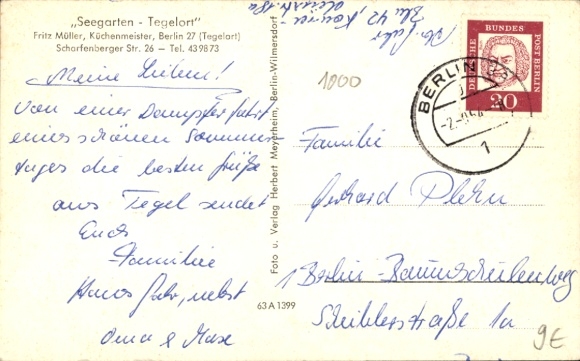 „Seegarten - Tegelort"
Fritz Müller, Küchenmeister, Berlin 27 (Tegelort)
Scharfenberger Str. 26 — Tel. 439873
Meine Lieben!
Von einer Dampferfahrt
eines schönen Sommer-
tages die besten Grüße
aus Tegel sendet
Euch
Familie
Hans Jahr, nebst
Oma &
Foto u. Verlag Herbert Meyerheim, Berlin-Wilmersdorf
63 A 1399
Bln 42,
1000
DEUTSCHE BUNDES POST BERLIN
20
BERLIN
1
Familie
Gerhard Plehn
1 Berlin-Baumschulenweg
Scheiblerstraße 1a
9E